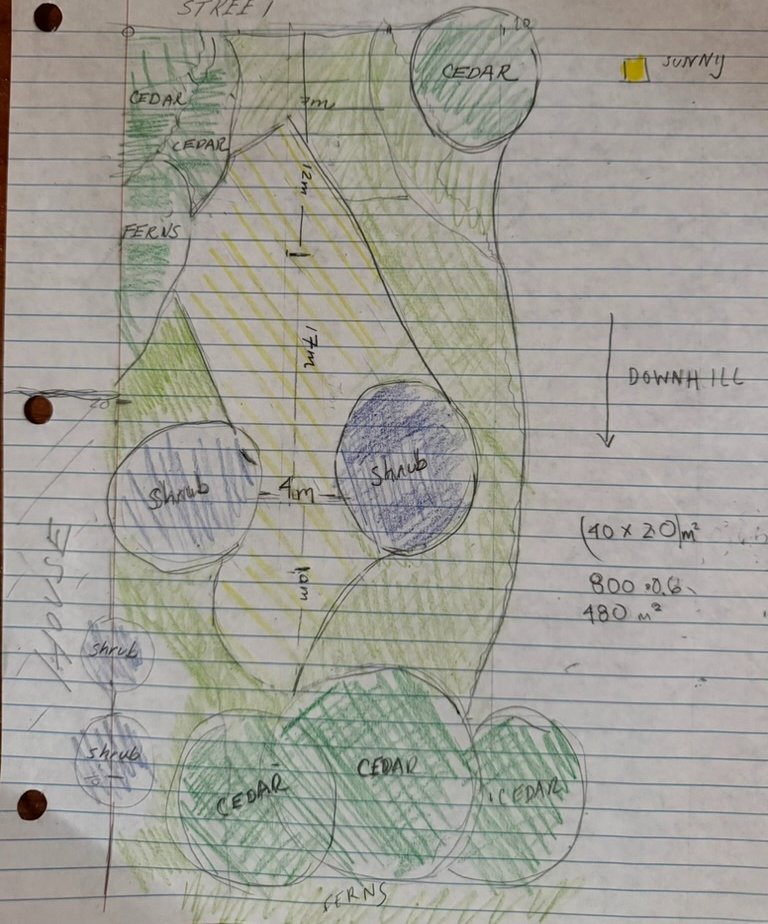 STREET
10
CEDAR
SUNNY
7m
CEDAR
CEDAR
12m
FERNS
17m
DOWNHILL
20
Shrub
Shrub
4m
(40 x 20)m²
800 · 0.6
480 m²
HOUSE
10m
shrub
shrub
CEDAR
CEDAR
CEDAR
FERNS